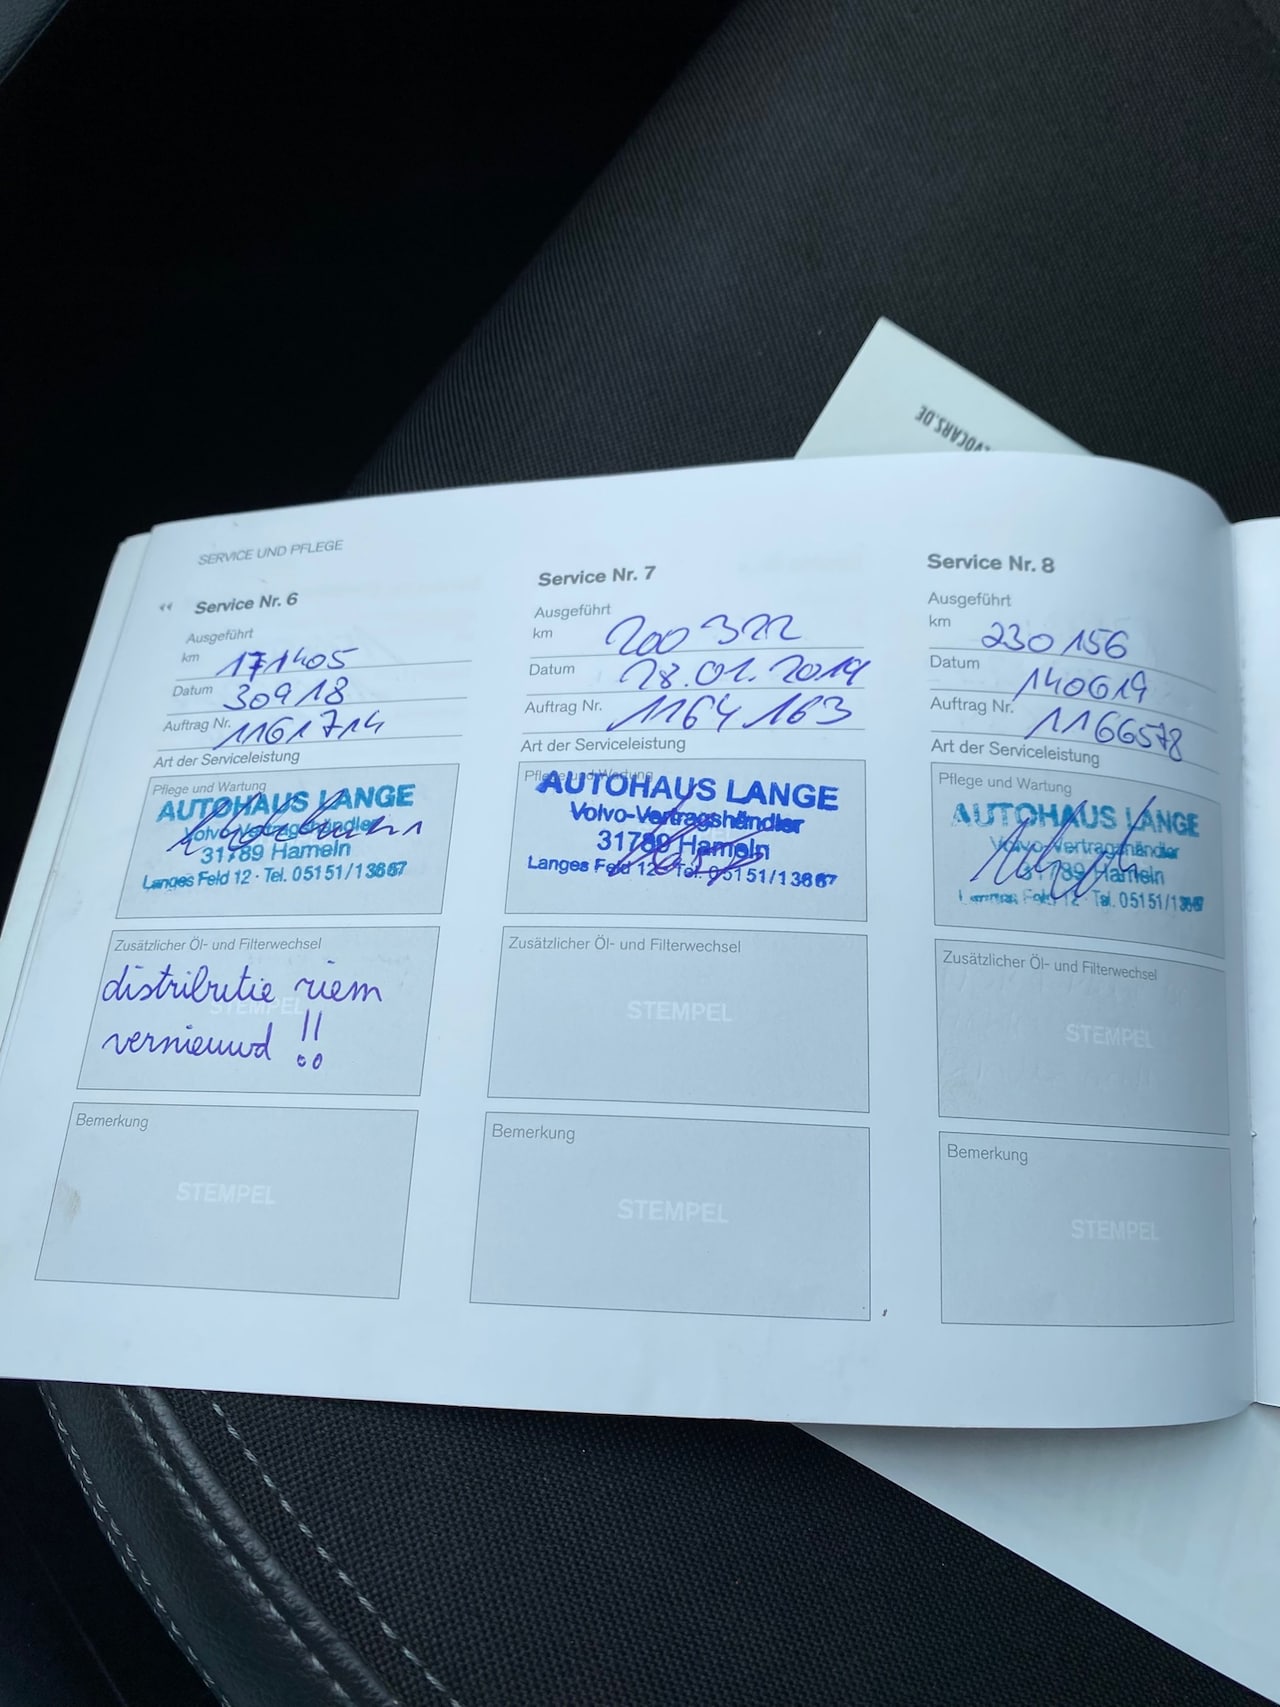 VOCARS.DE
SERVICE UND PFLEGE
Service Nr. 6
Ausgeführt
km 171405
Datum 300918
Auftrag Nr. 1161714
Art der Serviceleistung
Pflege und Wartung
AUTOHAUS LANGE
Volvo-Vertragshändler
31789 Hameln
Langes Feld 12 · Tel. 05151/13667
Zusätzlicher Öl- und Filterwechsel
distributie riem
STEMPEL
vernieuwd !!
Bemerkung
STEMPEL
Service Nr. 7
Ausgeführt
km 200322
Datum 28.01.2019
Auftrag Nr. 1164163
Art der Serviceleistung
Pflege und Wartung
AUTOHAUS LANGE
Volvo-Vertragshändler
31789 Hameln
Langes Feld 12 · Tel. 05151/13667
Zusätzlicher Öl- und Filterwechsel
STEMPEL
Bemerkung
STEMPEL
Service Nr. 8
Ausgeführt
km 230156
Datum 140619
Auftrag Nr. 1166578
Art der Serviceleistung
Pflege und Wartung
AUTOHAUS LANGE
Volvo-Vertragshändler
31789 Hameln
Langes Feld 12 · Tel. 05151/13667
Zusätzlicher Öl- und Filterwechsel
STEMPEL
Bemerkung
STEMPEL